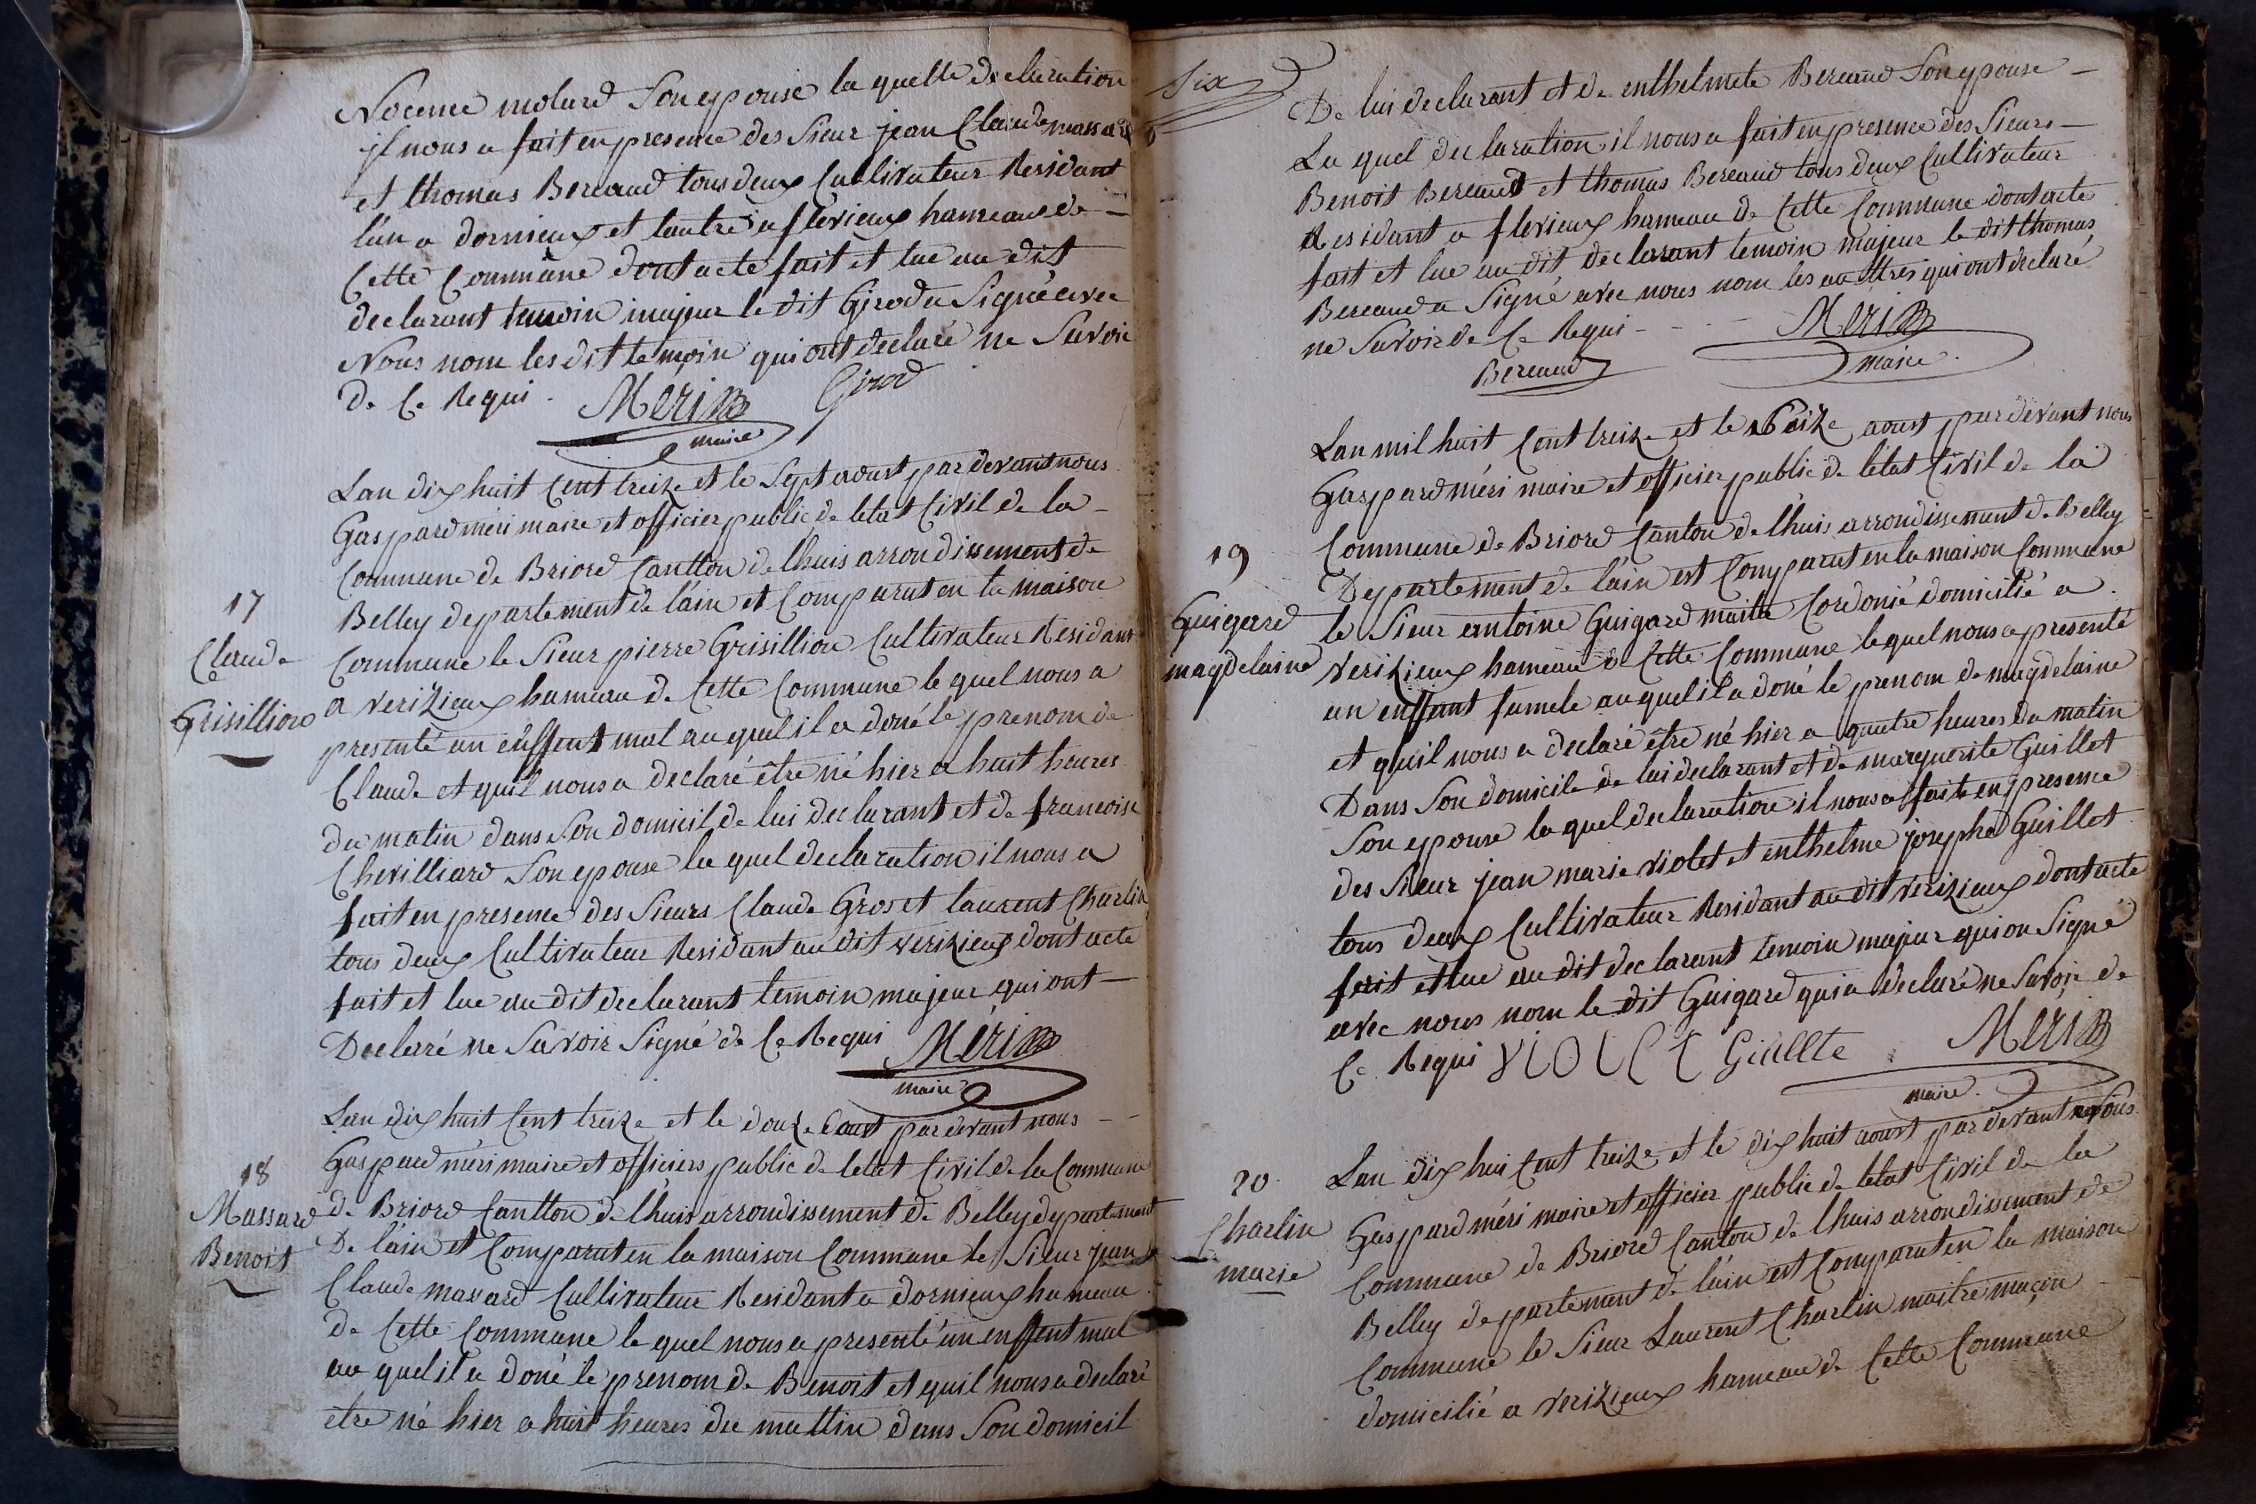 Nocence molard Son epouse la quelle declaration
il nous a fait en presence des Sieur jean Claude massard
et thomas Bereaud tous deux Cultivateur Residant
l'un a dornieux et lautre a flevieux hameaux de
Cette Commune dont acte fait et lue au dit
declarant temoin majeur le dit Girod a Signé avec
Nous nom les dit temoin qui ont declaré ne Savoir
de Ce Requi
Meri Girod
maire
Lan dix huit Cent treize et le Sept aoust par devant nous
Gaspard méri maire et officier public de letat Civil de la
Commune de Briord Cantton de lhuis arrondissement de
Belley departement de láin et Comparut en la maison
17
Commune le Sieur pierre Grisillion Cultivateur Residant
Claude
a verizieux hameau de Cette Commune le quel nous a
Grisillion
presenté un enffent mal au quel il a doné le prenom de
Claude et quil nous a declaré être né hier a huit heures
du matin dans Son domicil de lui declarant et de francoise
Chevilliard Son epouse la quel declaration il nous a
fait en presence des Sieurs Claude Gros et laurent Charlin
tous deux Cultivateur Residant au dit verizieux dont acte
fait et lue au dit declarant temoin majeur qui ont
Declarré ne Savoir Signé de Ce Requi Méri
maire
Lan dix huit Cent treize et le douze aoust par devant nous
Gaspard méri maire et officiers public de letat Civil de la Commune
18
de Briord Cantton de lhuis arrondissement de Belley departement
Massard
De láin et Comparut en la maison Commune le Sieur jean
Benoit
Claude massard Cultivateur Residant a dornieux hameau
de Cette Commune le quel nous a presenté un enffent mal
au quel il a doné le prenom de Benoit et quil nous a declaré
être né hier a huit heures du mattin dans Son domicil
Six
De lui declarant et de enthelmete Bereaud Son epouse
La quel declaration il nous a fait en presence des Sieurs
Benoit Bereaud et thomas Bereaud tous deux Cultivateur
Residant a flevieux hameau de Cette Commune dont acte
fait et lue au dit declarant temoin majeur le dit thomas
Bereaud a Signé avec nous nom les auttres qui ont declaré
ne Savoir de Ce Requi
Méri
maire
Bereaud
Lan mil huit Cent treize et le Seize aoust par devant nous
Gaspard méri maire et officier public de létat Civil de la
Commune de Briord Canton de lhuis arrondissement de Belley
19
Departement de láin est Comparut en la maison Commune
Guigard
le Sieur antoine Guigard maitre Cordonié domicilié a
magdelaine
verizieux hameau de Cette Commune le quel nous a presenté
un enffant famele au quel il a doné le prenom de magdelaine
et quil nous a declaré être né hier a quatre heures du matin
Dans Son domicile de lui declarant et de marguerite Guillet
Son epouse la quel declaration il nous a fait en presence
des Sieur jean marie violet et enthelme joseph Guillet
tous deux Cultivateur Residant au dit verizieux dont acte
fait et lue au dit declarant temoin majeur qui on Signé
avec nous nom le dit Guigard qui a declaré ne Savoir de
Ce Requi VIOLET Giellte Méri
maire
Lan dix hui Cent treize et le dix huit aoust par devant nous
20
Gaspard méri maire et officier public de letat Civil de la
Charlin
Commune de Briord Canton de lhuis arrondissement de
marie
Belley departemant de láin est Comparut en la maison
Commune le Sieur Laurent Charlin maitre maçon
domicilié a verizieux hameau de Cette Commune